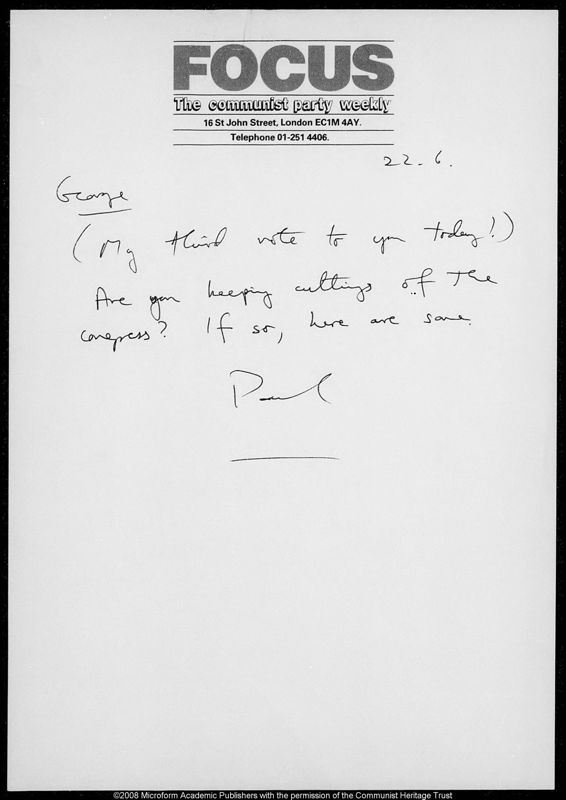 FOCUS
The communist party weekly
16 St John Street, London EC1M 4AY.
Telephone 01-251 4406.
22.6.
George
(My third note to you today!)
Are you keeping cuttings of the
congress? If so, here are some.
Paul
©2008 Microform Academic Publishers with the permission of the Communist Heritage Trust